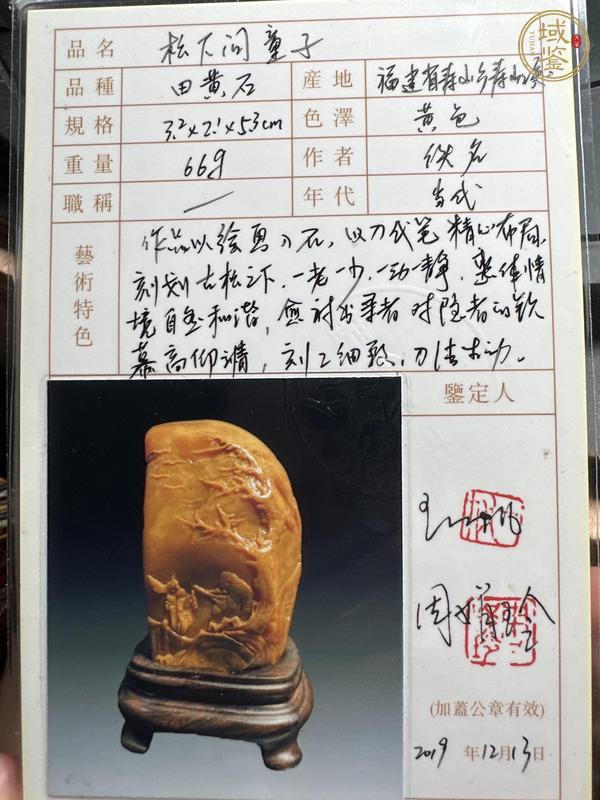 域鉴
YUJIAN
品名 松下问童子
品種 田黄石 産地 福建省寿山乡寿山溪
規格 3.2×2.1×5.3cm 色澤 黄色
重量 66g 作者 佚名
職稱 — 年代 当代
藝術特色
作品以绘画入石，以刀代笔，精心布局，
刻划古松之下，一老一少，一动一静，整体情
境自然和谐，愈衬出寻者对隐者的钦
慕高仰情，刻工细致，刀法生动。
鑒定人
(加蓋公章有效)
2019年12月13日